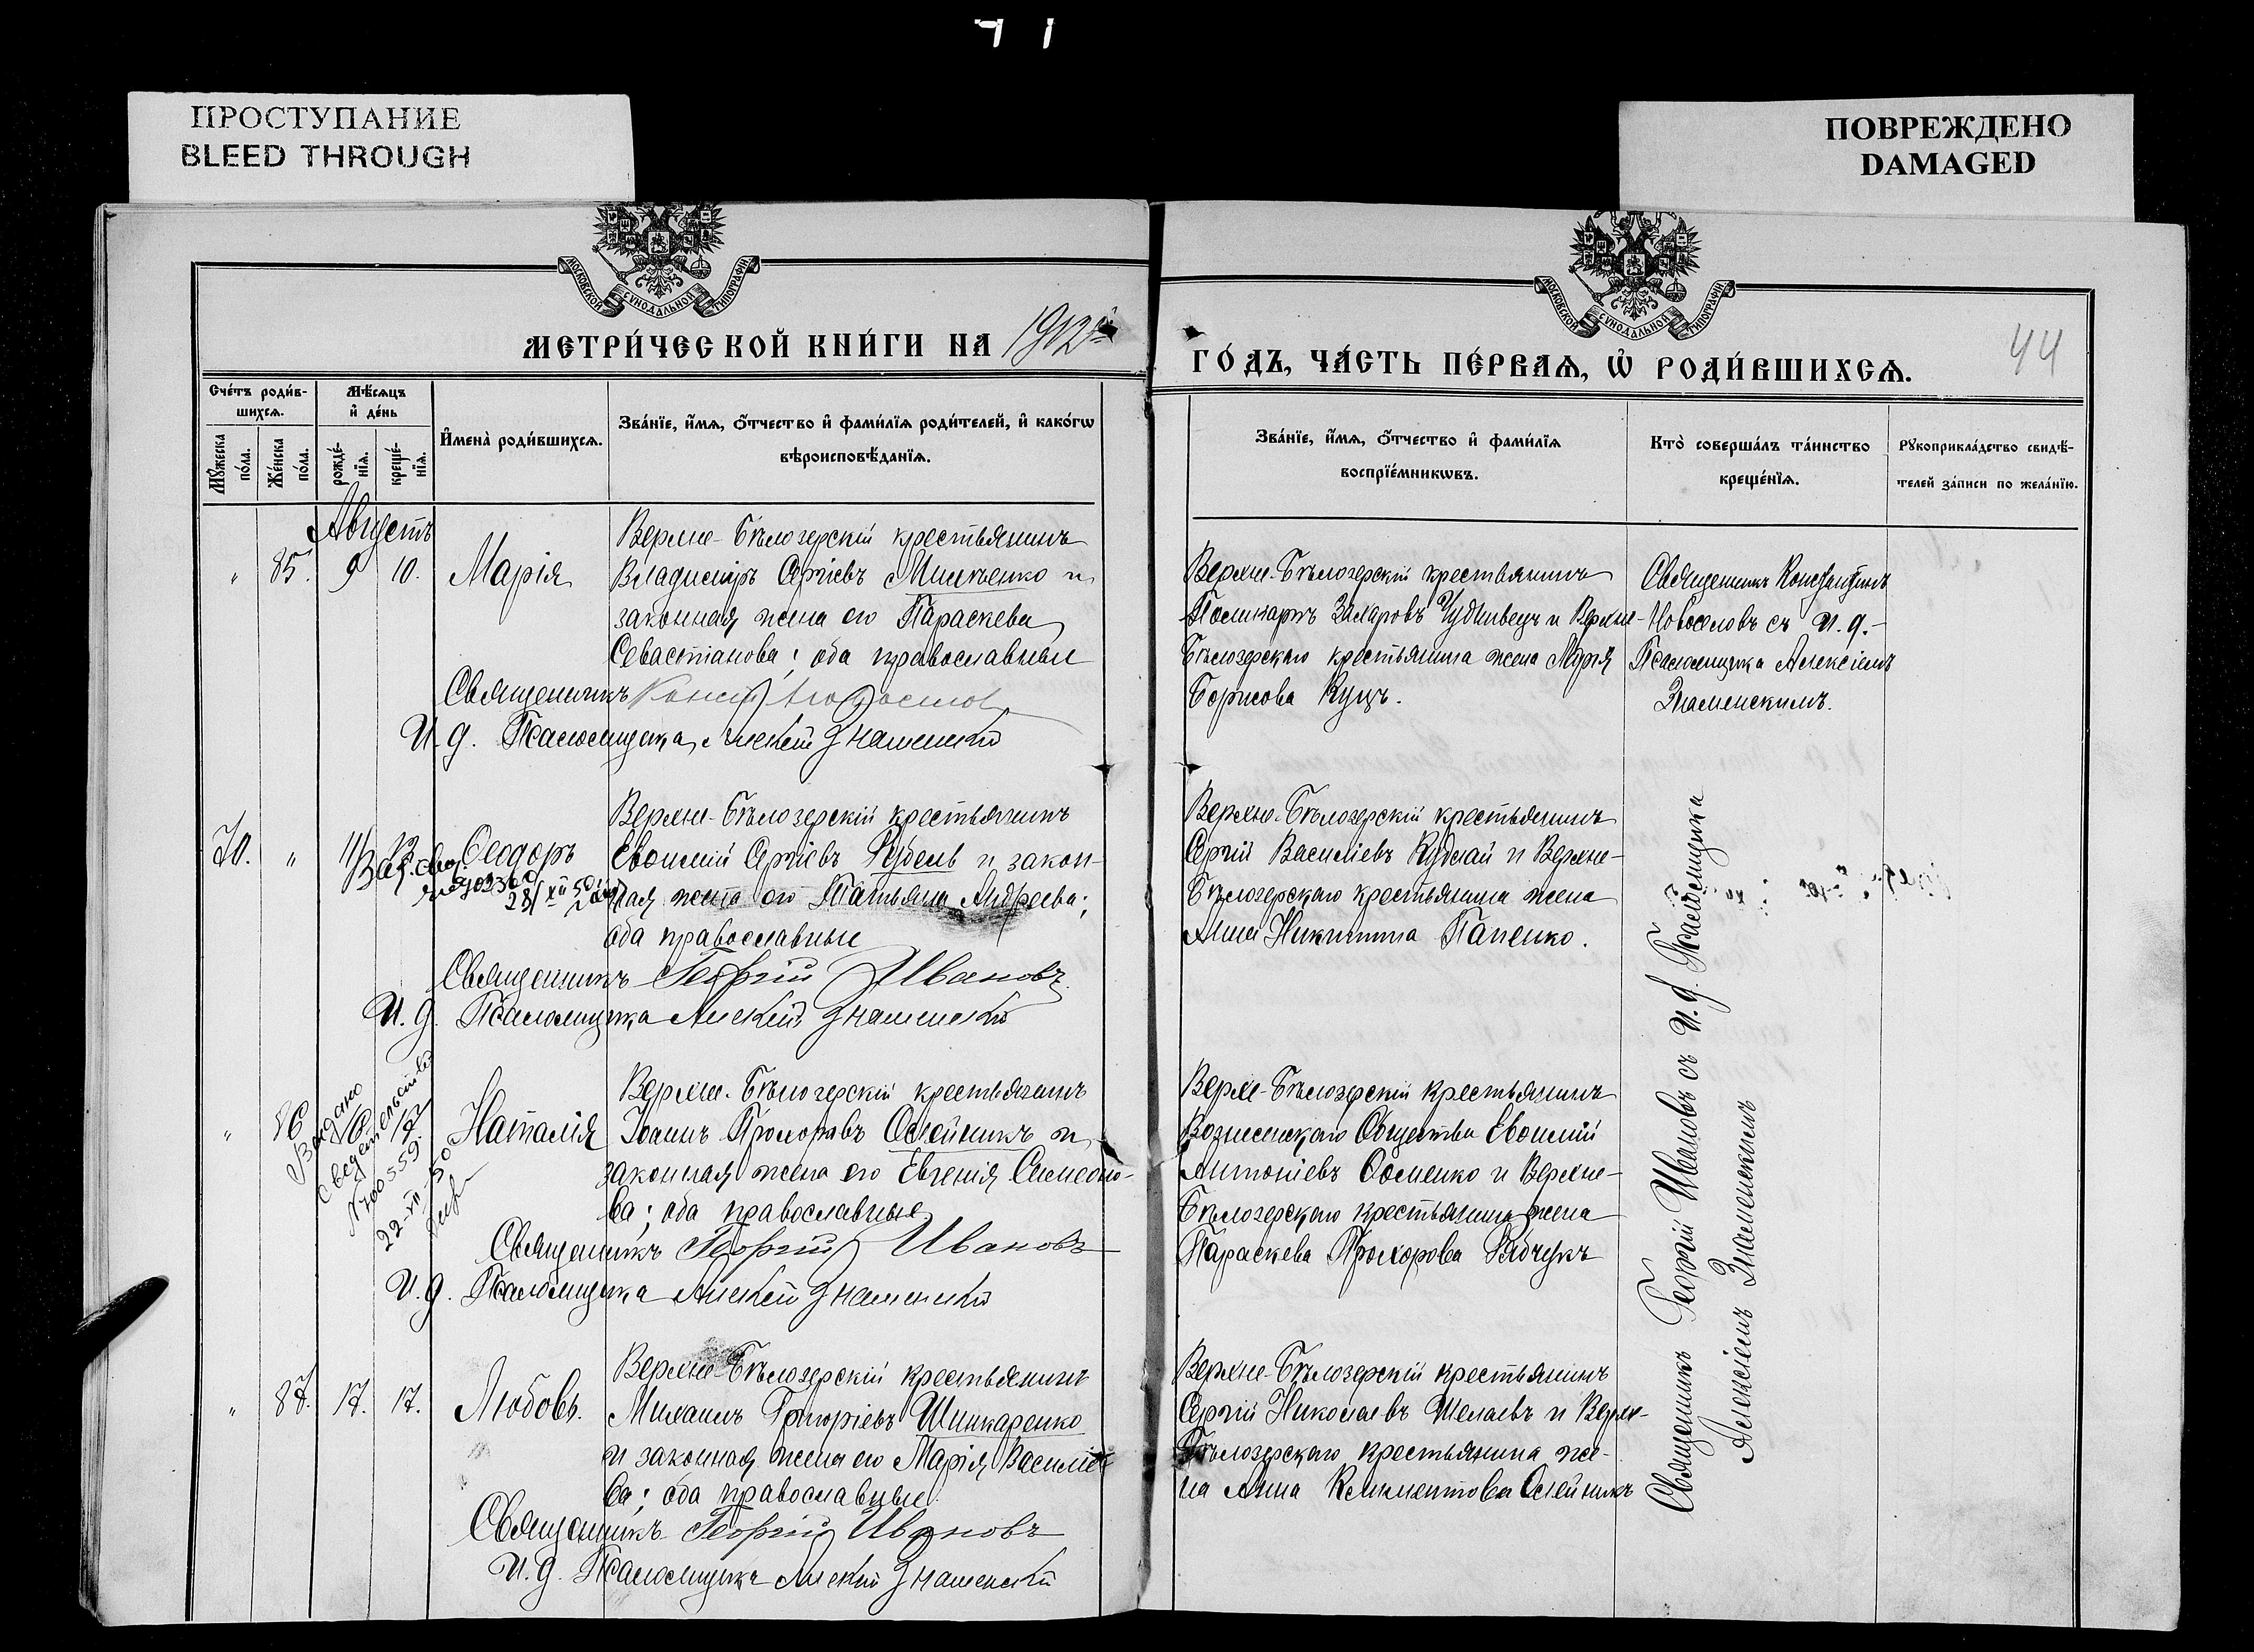 ПРОСТУПАНИЕ
BLEED THROUGH
ПОВРЕЖДЕНО
DAMAGED
МОСКОВСКОЙ СУНОДАЛЬНОЙ ТИПОГРАФІИ
МОСКОВСКОЙ СУНОДАЛЬНОЙ ТИПОГРАФІИ
МЕТРИ́ЧЕСКОЙ КНИ́ГИ НА 1912й
ГО́ДЪ, ЧА́СТЬ ПЕ́РВАѦ, Ѡ҆ РОДИ́ВШИХСѦ.
44
Сче́тъ роди́в-
шихсѧ.
Мѣ́сѧцъ
и҆ де́нь
Мꙋ́жеска
по́ла.
Же́нска
по́ла.
рожде́-
нїѧ.
креще́-
нїѧ.
И҆мена̀ роди́вшихсѧ.
Зва́нїе, и҆́мѧ, ѻ҆́тчество и҆ фами́лїѧ роди́телей, и҆ како́гѡ
вѣроисповѣ́данїѧ.
Зва́нїе, и҆́мѧ, ѻ҆́тчество и҆ фами́лїѧ
воспрїе́мникѡвъ.
Кто̀ соверша́лъ та́инство
креще́нїѧ.
Рꙋкоприкла́дство свидѣ́-
телей за́писи по жела́нїю.
Августъ
" 85. 9 10. Марія
Верхне-Бѣлозерскій крестьянинъ
Владиміръ Сергіевъ и
законная жена его Параскева
Севастіанова; оба православные
Священникъ
И. д. Псаломщика Алексій Знаменскій
Верхне-Бѣлозерскій крестьянинъ
Поликарпъ Захаровъ Чудновецъ и Верхне-
Бѣлозерскаго крестьянина жена Марія
Борисова Куцъ.
Священникъ Константинъ
Новоселовъ съ И. д.
Псаломщика Алексіемъ
Знаменскимъ.
70. " 11 Ѳеодоръ
Верхне-Бѣлозерскій крестьянинъ
Евѳимій Сергіевъ и закон-
ная жена его Татьяна Андреева;
оба православные
Священникъ Георгій Ивановъ
И. д. Псаломщика Алексій Знаменскій
Верхне-Бѣлозерскій крестьянинъ
Сергій Василіевъ Кудлай и Верхне-
Бѣлозерскаго крестьянина жена
Анна Никитина Папенко.
" 86 16 17 Наталія
Выдано
свидетельство
22-VII-50
Верхне-Бѣлозерскій крестьянинъ
Іоаннъ Прохоровъ Олейникъ и
законная жена его Евгенія Симеоно-
ва; оба православные
Священникъ Георгій Ивановъ
И. д. Псаломщика Алексій Знаменскій
Верхне-Бѣлозерскій крестьянинъ
Вознесенскаго Общества Евѳимій
Антоніевъ и Верхне-
Бѣлозерскаго крестьянина жена
Параскева Прохорова Рябчукъ
" 87. 17. 17. Любовь.
Верхне-Бѣлозерскій крестьянинъ
Михаилъ Григоріевъ Шинкаренко
и законная жена его Марія Василіе-
ва; оба православные.
Священникъ Георгій Ивановъ
И. д. Псаломщика Алексій Знаменскій
Верхне-Бѣлозерскій крестьянинъ
Сергій Николаевъ Шелаевъ и Верхне-
Бѣлозерскаго крестьянина же-
на Анна Климентова Олейникъ
Священникъ Георгій Ивановъ съ И. д. Псаломщика
Алексіемъ Знаменскимъ